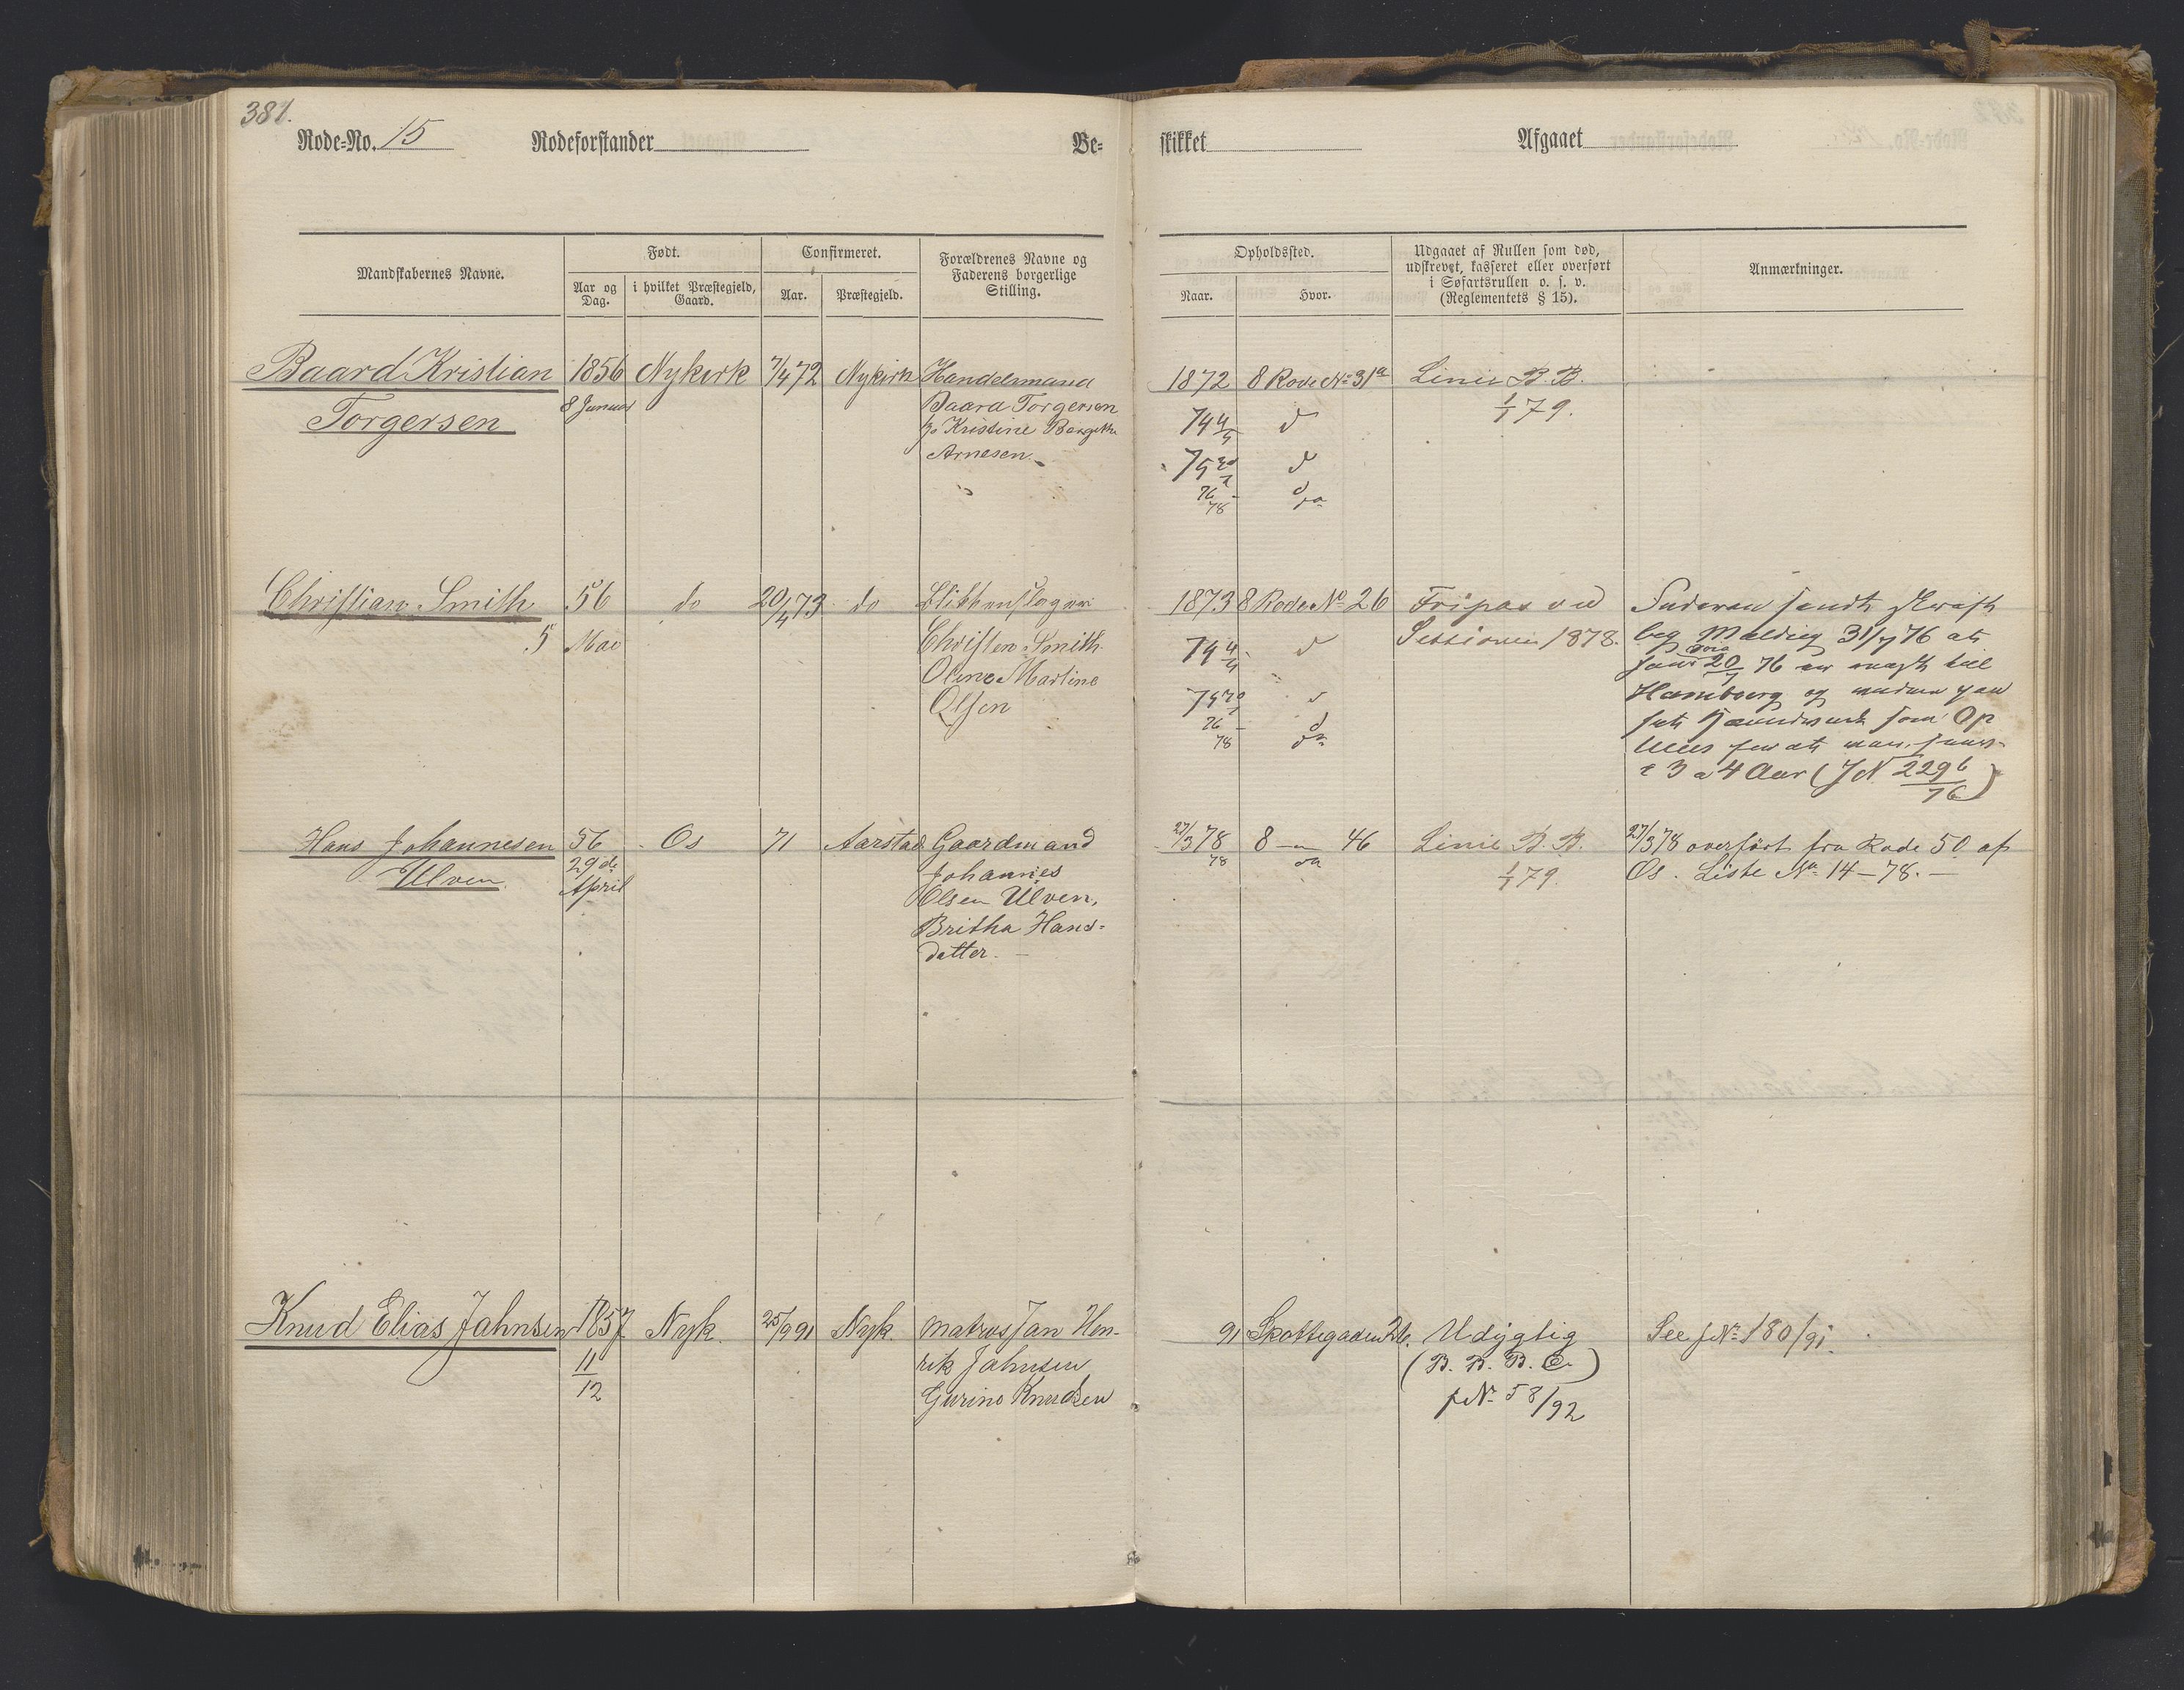 381.
Rode=No. 15 Rodeforstander Be=
skikket Afgaaet
Mandskabernes Navne.
Født.
Aar og Dag.
i hvilket Præstegjeld, Gaard.
Confirmeret.
Aar.
Præstegjeld.
Forældrenes Navne og
Faderens borgerlige
Stilling.
Opholdssted.
Naar.
Hvor.
Udgaaet af Rullen som død,
udskrevet, kasseret eller overført
i Søfartsrullen o. s. v.
(Reglementets § 15).
Anmærkninger.
Baard Kristian 1856 Nykirk 7/4 72 Nykirk Handelsmand
Torgersen 8 Januar Baard Torgersen
Kristine
Arnesen
1872 8 Rode No 31a Linie B. B.
74 4/4 d 1/1 79.
75 20/1 d
76 - d
78 do
Christian Smith 56 do 20/4 73 do Blikkenslager
5 Mai Christen Smith
Oline Martine
Olsen
1873 8 Rode No 26 Fripas ved
74 4/4 d Sessionen 1878.
75 20/1 d
76 - d
78 do
sendt
Melding 31/7 76 at
20/7 76 er til
Hamborg og
som Op
at
3 a 4 Aar (J N 2296/76)
Hans Johannesen 56 Os 71 Aarstad Gaardmand
Ulven. 29de April Johannes
Olsen Ulven,
Britha Hans=
datter. —
27/3 78 8 — 46 Linie B. B. 27/3 78 overført fra Rode 50 af
78 1/1 79. Os. Liste No 14 - 78. —
Knud Elias Jahnsen 1857 Nyk. 25/9 91 Nyk. Matros Jan Hen-
11/12 rik Jahnsen
Gurine Knudsen
91 Skottegaden 26. Udygtig See JNo 180/91.
(B. B. B. C.)
JNo 58/92